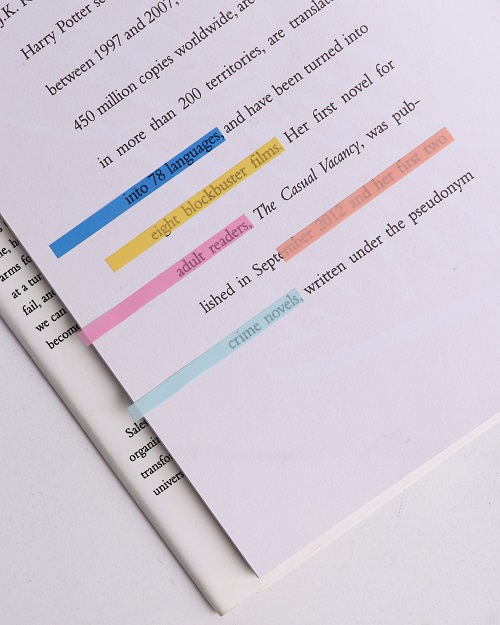 J.K.
Harry Potter se
between 1997 and 2007,
450 million copies worldwide, are
in more than 200 territories, are translat
into 78 languages, and have been turned into
eight blockbuster films. Her first novel for
adult readers, The Casual Vacancy, was pub-
lished in September 2012 and her first two
crime novels, written under the pseudonym
arms fo
at a tur
fail, an
we can
become
Sales
organiz
transfo
univers